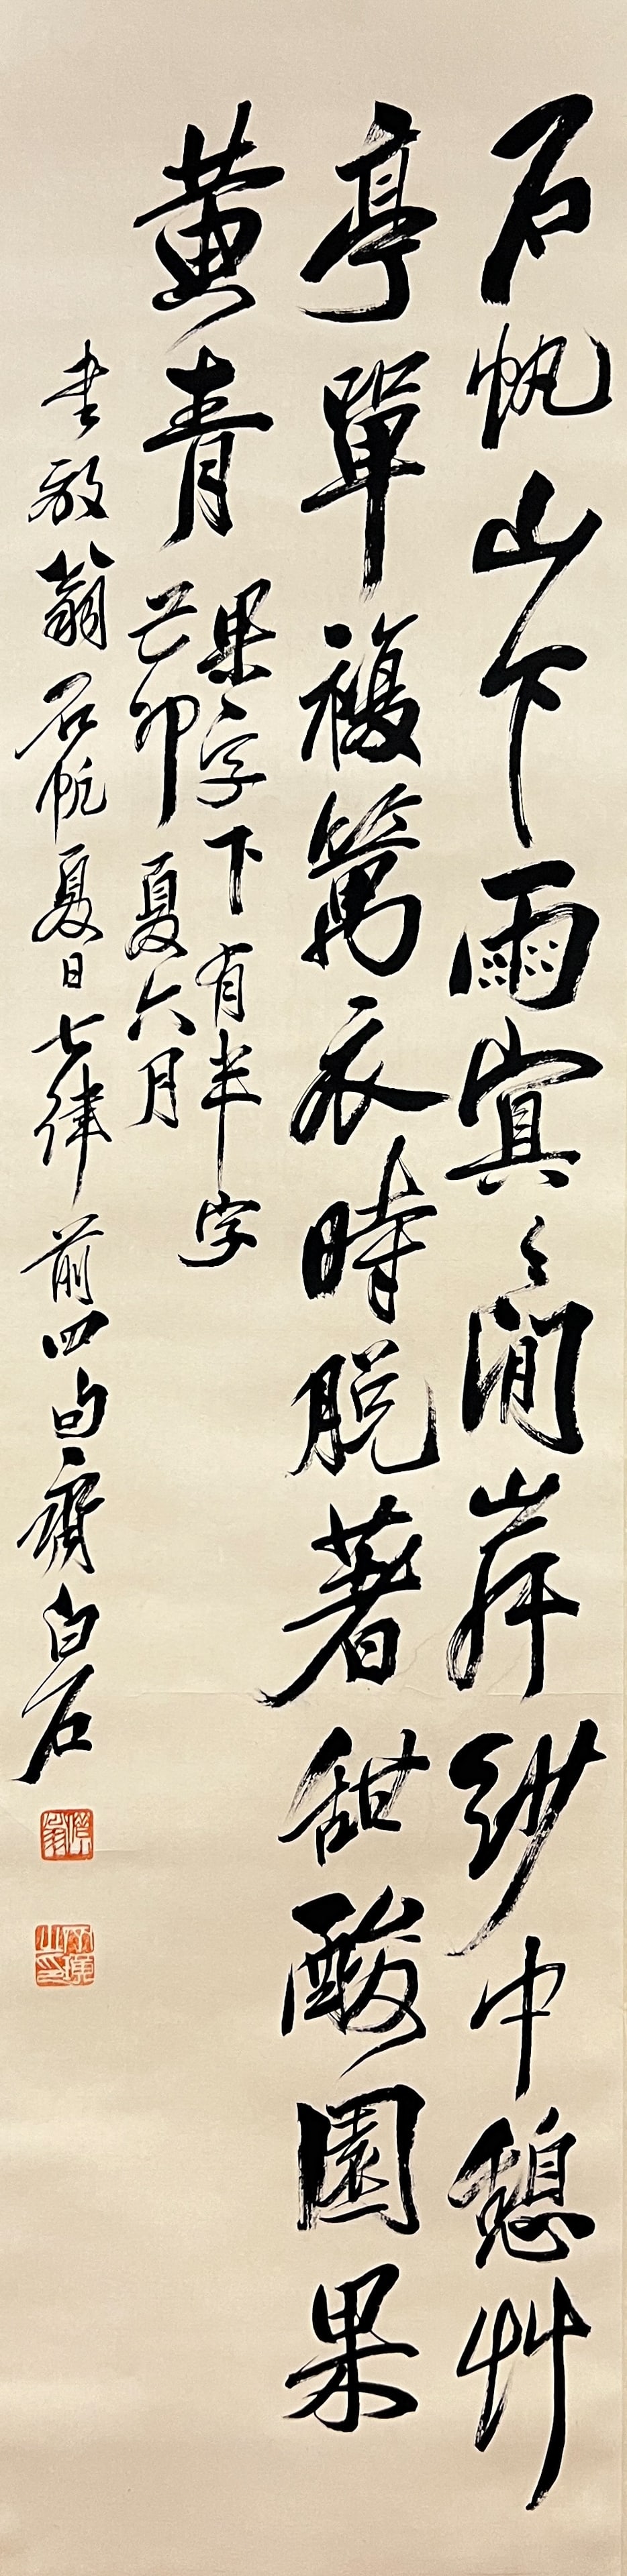 石帆山下雨冥々閒岸紗巾憩艸
亭單複衣時脫著甜酸園果
黃青
果字下有半字
己卯夏六月
書放翁石帆夏日七律前四句齊白石
齊璜之印